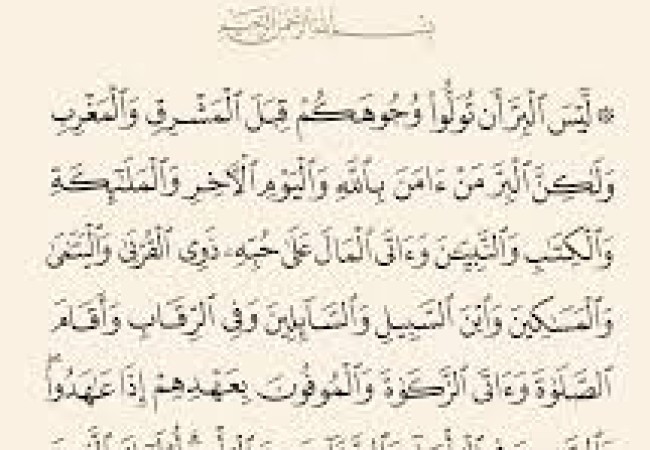 بسم الله الرحمن الرحيم
* لَّيْسَ ٱلْبِرَّ أَن تُوَلُّوا۟ وُجُوهَكُمْ قِبَلَ ٱلْمَشْرِقِ وَٱلْمَغْرِبِ
وَلَٰكِنَّ ٱلْبِرَّ مَنْ ءَامَنَ بِٱللَّهِ وَٱلْيَوْمِ ٱلْءَاخِرِ وَٱلْمَلَٰٓئِكَةِ
وَٱلْكِتَٰبِ وَٱلنَّبِيِّـۧنَ وَءَاتَى ٱلْمَالَ عَلَىٰ حُبِّهِۦ ذَوِى ٱلْقُرْبَىٰ وَٱلْيَتَٰمَىٰ
وَٱلْمَسَٰكِينَ وَٱبْنَ ٱلسَّبِيلِ وَٱلسَّآئِلِينَ وَفِى ٱلرِّقَابِ وَأَقَامَ
ٱلصَّلَوٰةَ وَءَاتَى ٱلزَّكَوٰةَ وَٱلْمُوفُونَ بِعَهْدِهِمْ إِذَا عَٰهَدُوا۟